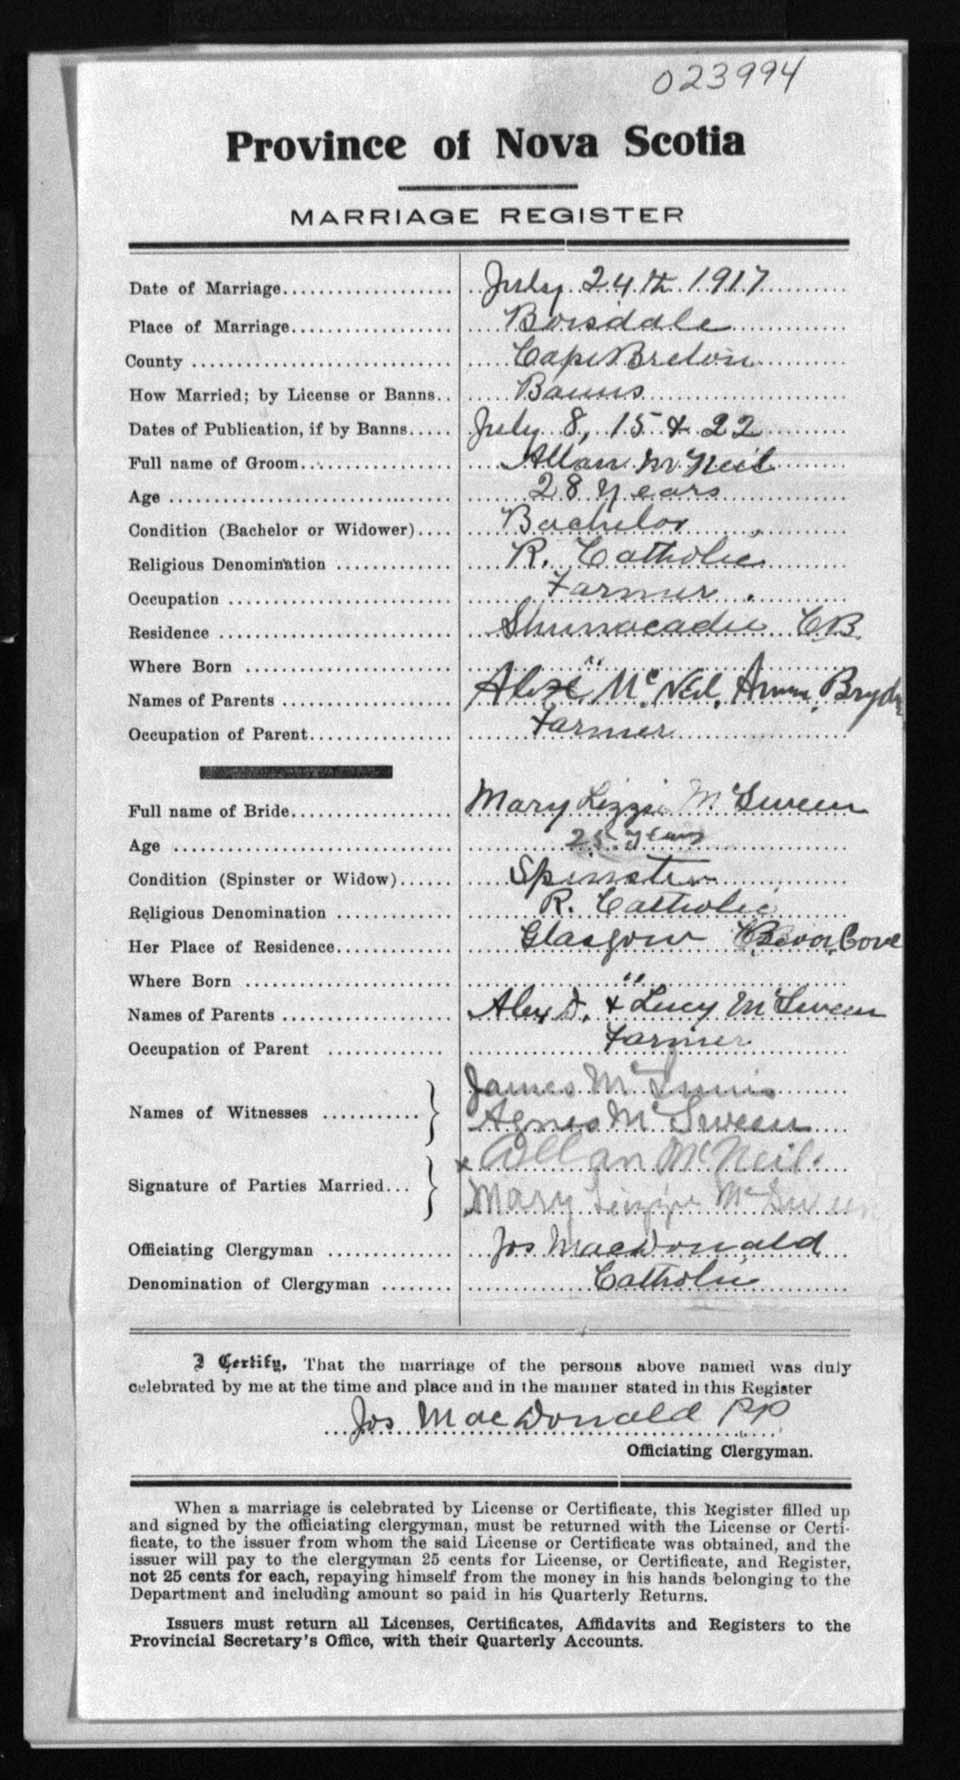 023994
Province of Nova Scotia
MARRIAGE REGISTER
Date of Marriage July 24th 1917
Place of Marriage Boisdale
County Cape Breton
How Married; by License or Banns Banns
Dates of Publication, if by Banns July 8, 15 & 22
Full name of Groom Allan McNeil
Age 28 years
Condition (Bachelor or Widower) Bachelor
Religious Denomination R. Catholic
Occupation Farmer
Residence Shunacadie C.B.
Where Born "
Names of Parents Alex McNeil, Ann
Occupation of Parent Farmer
Full name of Bride Mary Lizzie McSween
Age 25 years
Condition (Spinster or Widow) Spinster
Religious Denomination R. Catholic
Her Place of Residence Glasgow Cove
Where Born "
Names of Parents Alex D. & Lucy McSween
Occupation of Parent Farmer
James McInnis
Names of Witnesses
Agnes McSween
x Allan McNeil
Signature of Parties Married
Mary Lizzie McSween
Officiating Clergyman Jos MacDonald
Denomination of Clergyman Catholic
I Certify, That the marriage of the persons above named was duly
celebrated by me at the time and place and in the manner stated in this Register
Jos MacDonald P.P.
Officiating Clergyman.
When a marriage is celebrated by License or Certificate, this Register filled up
and signed by the officiating clergyman, must be returned with the License or Certi-
ficate, to the issuer from whom the said License or Certificate was obtained, and the
issuer will pay to the clergyman 25 cents for License, or Certificate, and Register,
not 25 cents for each, repaying himself from the money in his hands belonging to the
Department and including amount so paid in his Quarterly Returns.
Issuers must return all Licenses, Certificates, Affidavits and Registers to the
Provincial Secretary's Office, with their Quarterly Accounts.